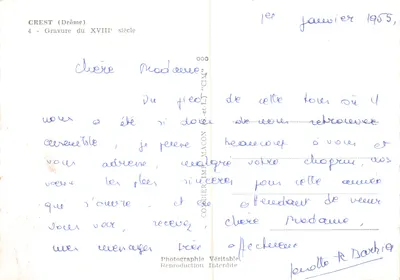 CREST (Drôme)
4 - Gravure du XVIIIe siècle
1er janvier 1955,
Chère Madame,
Du pied de cette tour où il
nous a été si doux de nous retrouver
ensemble, je pense beaucoup à vous et
vous adresse, malgré votre chagrin, nos
vœux les plus sincères pour cette année
que s'ouvre, et en attendant de venir
vous voir, recevez, chère Madame,
mes messages très affectueux
COMBIER IMP. MACON "CIM"
Photographie Véritable
Reproduction Interdite